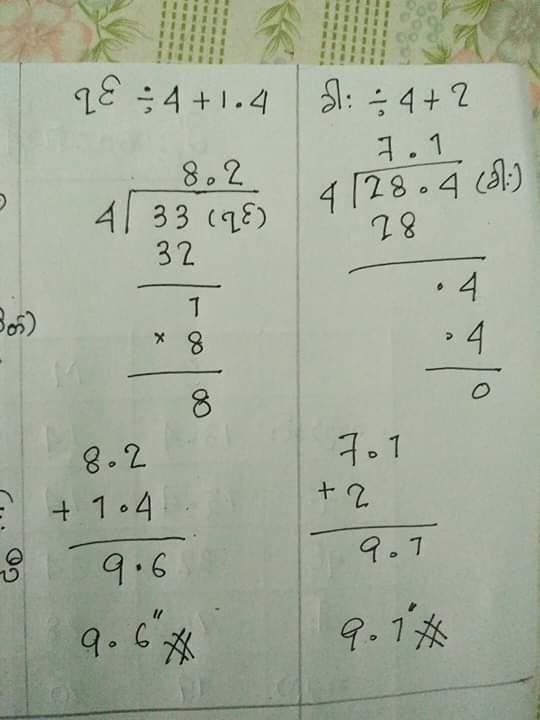 ရင် ÷ 4 + 1.4
8.2
4 33 (ရင်)
32
1
× 8
8
8.2
+ 1.4
9.6
9.6"
ခါး ÷ 4 + 2
7.1
4 28.4 (ခါး)
28
.4
.4
0
7.1
+ 2
9.1
9.1"